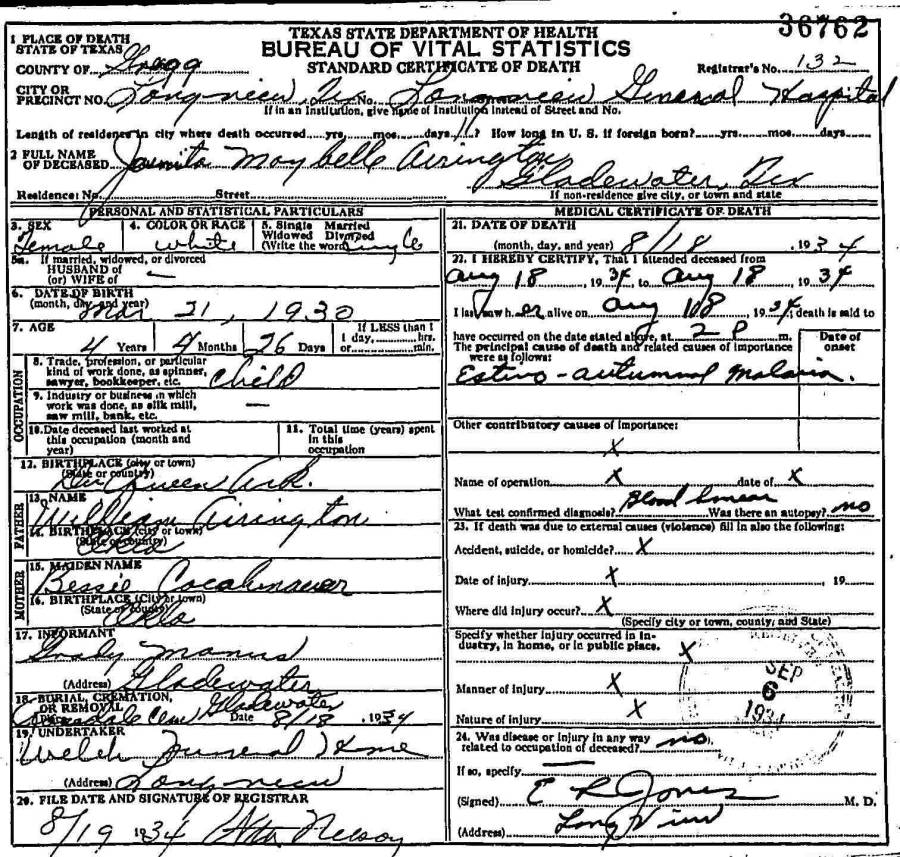 36762
TEXAS STATE DEPARTMENT OF HEALTH
BUREAU OF VITAL STATISTICS
STANDARD CERTIFICATE OF DEATH
1 PLACE OF DEATH
STATE OF TEXAS
COUNTY OF Gregg
Registrar's No. 132
CITY OR PRECINCT NO. Longview, Tex No. Longview General Hospital
If in an Institution, give name of Institution instead of Street and No.
Length of residence in city where death occurred yrs. mos. days ? How long in U. S. if foreign born? yrs. mos. days
2 FULL NAME OF DECEASED Maybelle Airington
Gladewater, Tex
Residence: No. Street If non-residence give city, or town and state
PERSONAL AND STATISTICAL PARTICULARS
3. SEX Female
4. COLOR OR RACE white
5. Single Married Widowed Divorced (Write the word) single
5a. If married, widowed, or divorced
HUSBAND of
(or) WIFE of —
6. DATE OF BIRTH
(month, day, and year) Mar 21, 1930
7. AGE
4 Years 4 Months 26 Days
If LESS than 1
1 day, hrs.
or min.
OCCUPATION
8. Trade, profession, or particular
kind of work done, as spinner,
sawyer, bookkeeper, etc. Child
9. Industry or business in which
work was done, as silk mill,
saw mill, bank, etc. —
10. Date deceased last worked at
this occupation (month and
year)
11. Total time (years) spent
in this
occupation
12. BIRTHPLACE (city or town)
(State or country) Queen Ark.
FATHER
13. NAME
William Airington
14. BIRTHPLACE (city or town)
(State or country) Okla
MOTHER
15. MAIDEN NAME
Bessie
16. BIRTHPLACE (City or town)
(State or country) Okla
17. INFORMANT
Manus
(Address) Gladewater
18. BURIAL, CREMATION,
OR REMOVAL Gladewater
Place Cem Date 8/18, 1934
19. UNDERTAKER
Welch Funeral Home
(Address) Longview
20. FILE DATE AND SIGNATURE OF REGISTRAR
8/19 1934 Nelson
MEDICAL CERTIFICATE OF DEATH
21. DATE OF DEATH
(month, day, and year) 8/18, 1934
22. I HEREBY CERTIFY, That I attended deceased from
Aug 18, 1934 to Aug 18, 1934
I last saw her alive on Aug 18, 1934; death is said to
have occurred on the date stated above, at 2 P m.
The principal cause of death and related causes of importance
were as follows:
Date of
onset
Estivo-autumnal Malaria.
Other contributory causes of importance:
X
Name of operation X date of X
What test confirmed diagnosis? Blood smear Was there an autopsy? no
23. If death was due to external causes (violence) fill in also the following:
Accident, suicide, or homicide? X
Date of injury X, 19
Where did injury occur? X
(Specify city or town, county, and State)
Specify whether injury occurred in in-
dustry, in home, or in public place. X
Manner of injury X
Nature of injury X
SEP
6
1934
24. Was disease or injury in any way
related to occupation of deceased? no
If so, specify —
(Signed) E R Jones M. D.
(Address) Long View